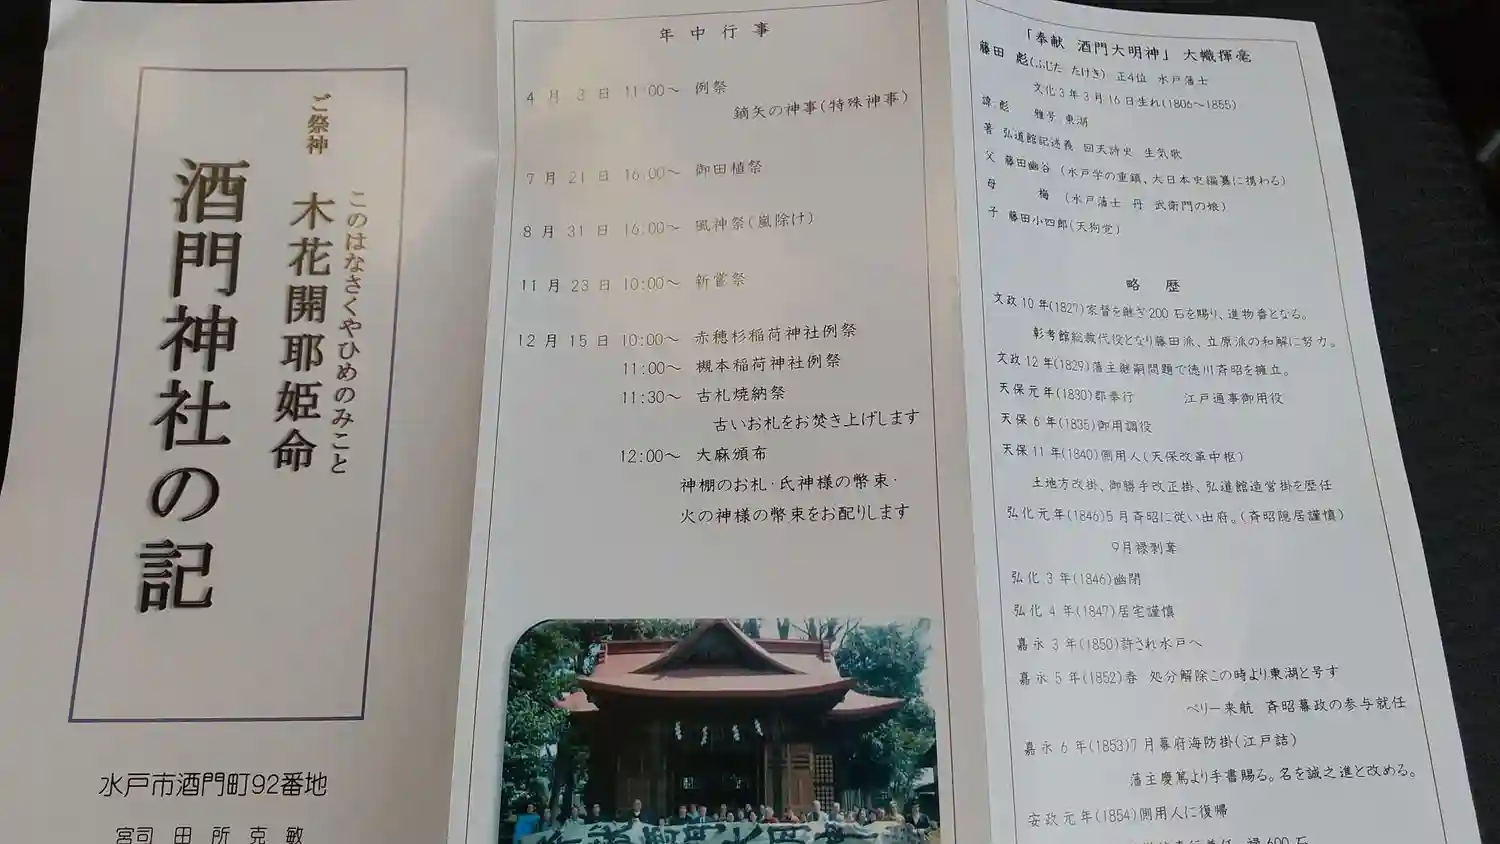 ご祭神
このはなさくやひめのみこと
木花開耶姫命
酒門神社の記
水戸市酒門町92番地
宮司 田所克敏
年中行事
4月3日 11:00～ 例祭
鏑矢の神事(特殊神事)
7月21日 16:00～ 御田植祭
8月31日 16:00～ 風神祭(嵐除け)
11月23日 10:00～ 新嘗祭
12月15日 10:00～ 赤穂杉稲荷神社例祭
11:00～ 槻本稲荷神社例祭
11:30～ 古札焼納祭
古いお札をお焚き上げします
12:00～ 大麻頒布
神棚のお札・氏神様の幣束・
火の神様の幣束をお配りします
「奉献 酒門大明神」大幟揮毫
藤田 彪(ふじた たけき) 正4位 水戸藩士
文化3年3月16日生れ(1806～1855)
諱 彪 雅号 東湖
著 弘道館記述義 回天詩史 生気歌
父 藤田幽谷(水戸学の重鎮、大日本史編纂に携わる)
母 梅 (水戸藩士 丹 武衛門の娘)
子 藤田小四郎(天狗党)
略歴
文政10年(1827)家督を継ぎ200石を賜り、進物番となる。
彰考館総裁代役となり藤田派、立原派の和解に努力。
文政12年(1829)藩主継嗣問題で徳川斉昭を擁立。
天保元年(1830)郡奉行 江戸通事御用役
天保6年(1835)御用調役
天保11年(1840)側用人(天保改革中枢)
土地方改掛、御勝手改正掛、弘道館造営掛を歴任
弘化元年(1846)5月斉昭に従い出府。(斉昭隠居謹慎)
9月禄剥奪
弘化3年(1846)幽閉
弘化4年(1847)居宅謹慎
嘉永3年(1850)許され水戸へ
嘉永5年(1852)春 処分解除この時より東湖と号す
ペリー来航 斉昭幕政の参与就任
嘉永6年(1853)7月幕府海防掛(江戸詰)
藩主慶篤より手書賜る。名を誠之進と改める。
安政元年(1854)側用人に復帰
禄600石